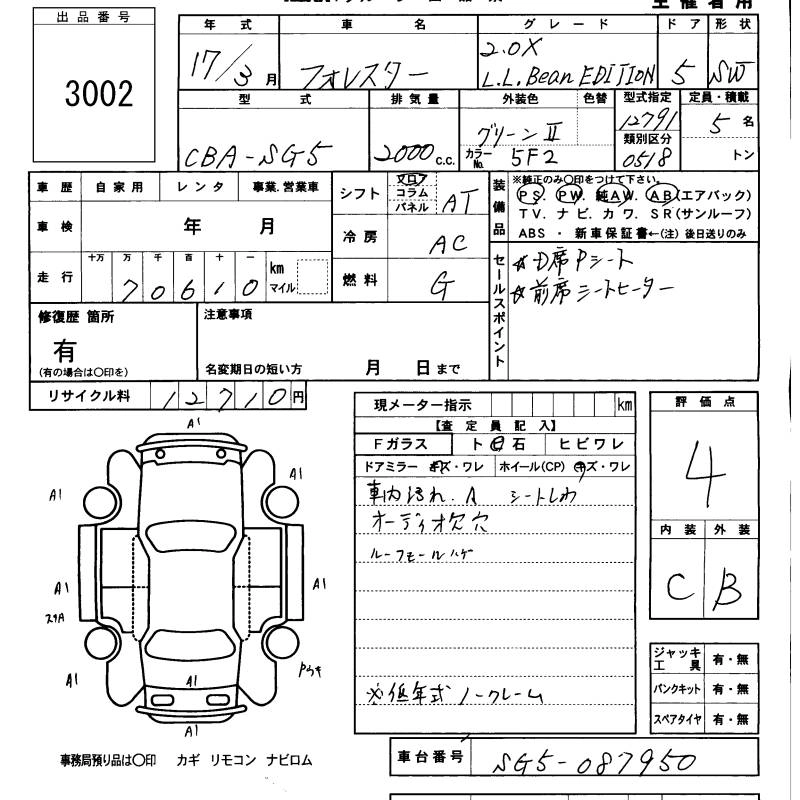 出品番号
3002
年式 車名 グレード ドア 形状
17/3月 フォレスター 2.0X
L.L.Bean EDITION 5 SW
型式 排気量 外装色 色替 型式指定 定員・積載
CBA-SG5 2000c.c. グリーンⅡ 12791 5名
カラーNo. 5F2 類別区分 0518 トン
車歴 自家用 レンタ 事業.営業車
車検 年 月
走行 十万 万 千 百 十 一 km マイル
70610
シフト フロア コラム パネル AT
冷房 AC
燃料 G
装備品
※純正のみ〇印をつけて下さい。
PS. PW. 純AW. AB(エアバック)
TV.ナビ.カワ.SR(サンルーフ)
ABS・新車保証書←(注)後日送りのみ
セールスポイント
☆D席Pシート
☆前席シートヒーター
修復歴 箇所
有
(有の場合は〇印を)
注意事項
名変期日の短い方 月 日まで
リサイクル料 12710円
現メーター指示 km
【査定員記入】
Fガラス ト石 ヒビワレ
ドアミラー キズ・ワレ ホイール(CP) キズ・ワレ
車内汚れ.A シートしわ
オーディオ欠穴
ルーフモールハゲ
※低年式ノークレーム
評価点
4
内装 外装
C B
ジャッキ 工具 有・無
パンクキット 有・無
スペアタイヤ 有・無
A1
A1
A1
A1
A1
スリA
A1
A1
A1
事務局預り品は〇印 カギ リモコン ナビロム
車台番号 SG5-087950